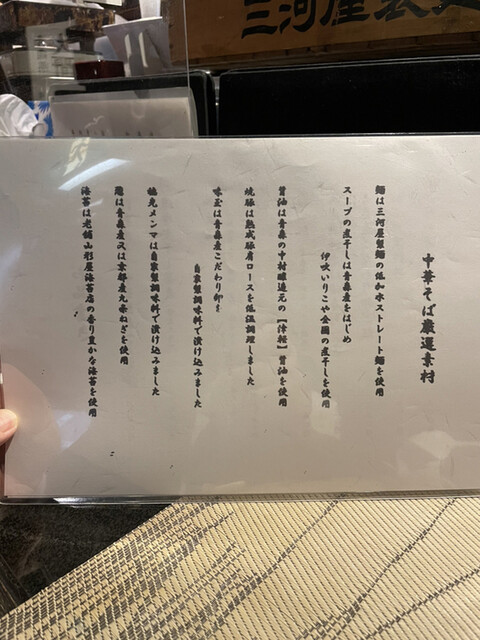 三河屋製
中華そば厳選素材
麺は三河屋製麺の低加水ストレート麺を使用
スープの煮干しは青森産をはじめ
伊吹いりこや全国の煮干しを使用
醤油は青森の中村醸造元の【津軽】醤油を使用
焼豚は熟成豚肩ロースを低温調理しました
味玉は青森産こだわり卵を
自家製調味料で漬け込みました
穂先メンマは自家製調味料で漬け込みました
葱は青森産又は京都産九条ねぎを使用
海苔は老舗山形屋海苔店の香り豊かな海苔を使用